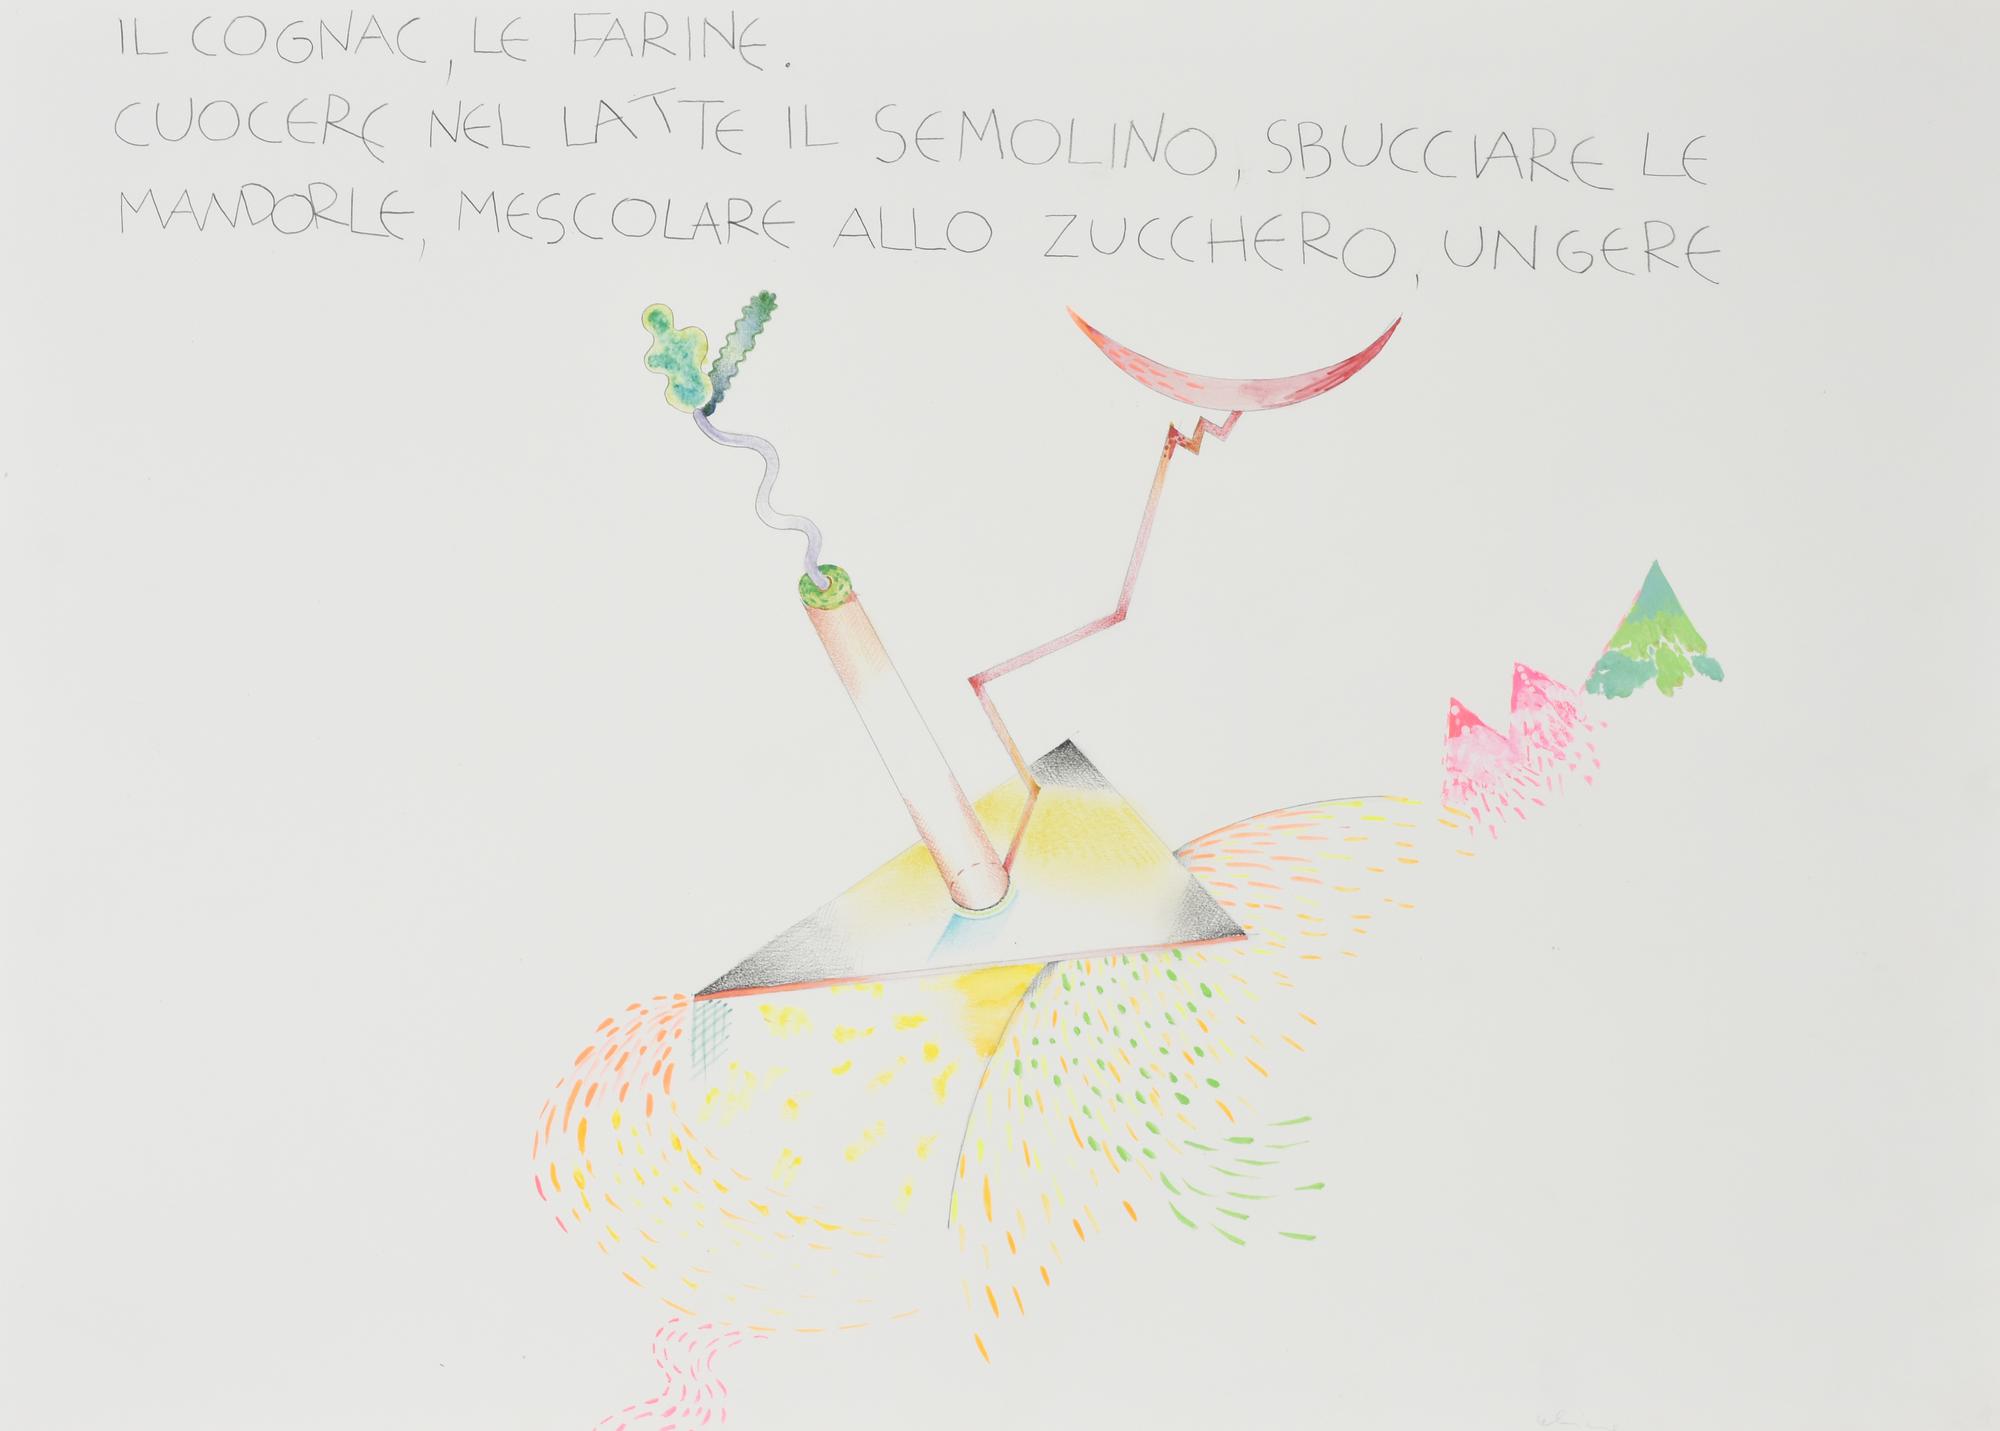 IL COGNAC, LE FARINE.
CUOCERE NEL LATTE IL SEMOLINO, SBUCCIARE LE
MANDORLE, MESCOLARE ALLO ZUCCHERO, UNGERE